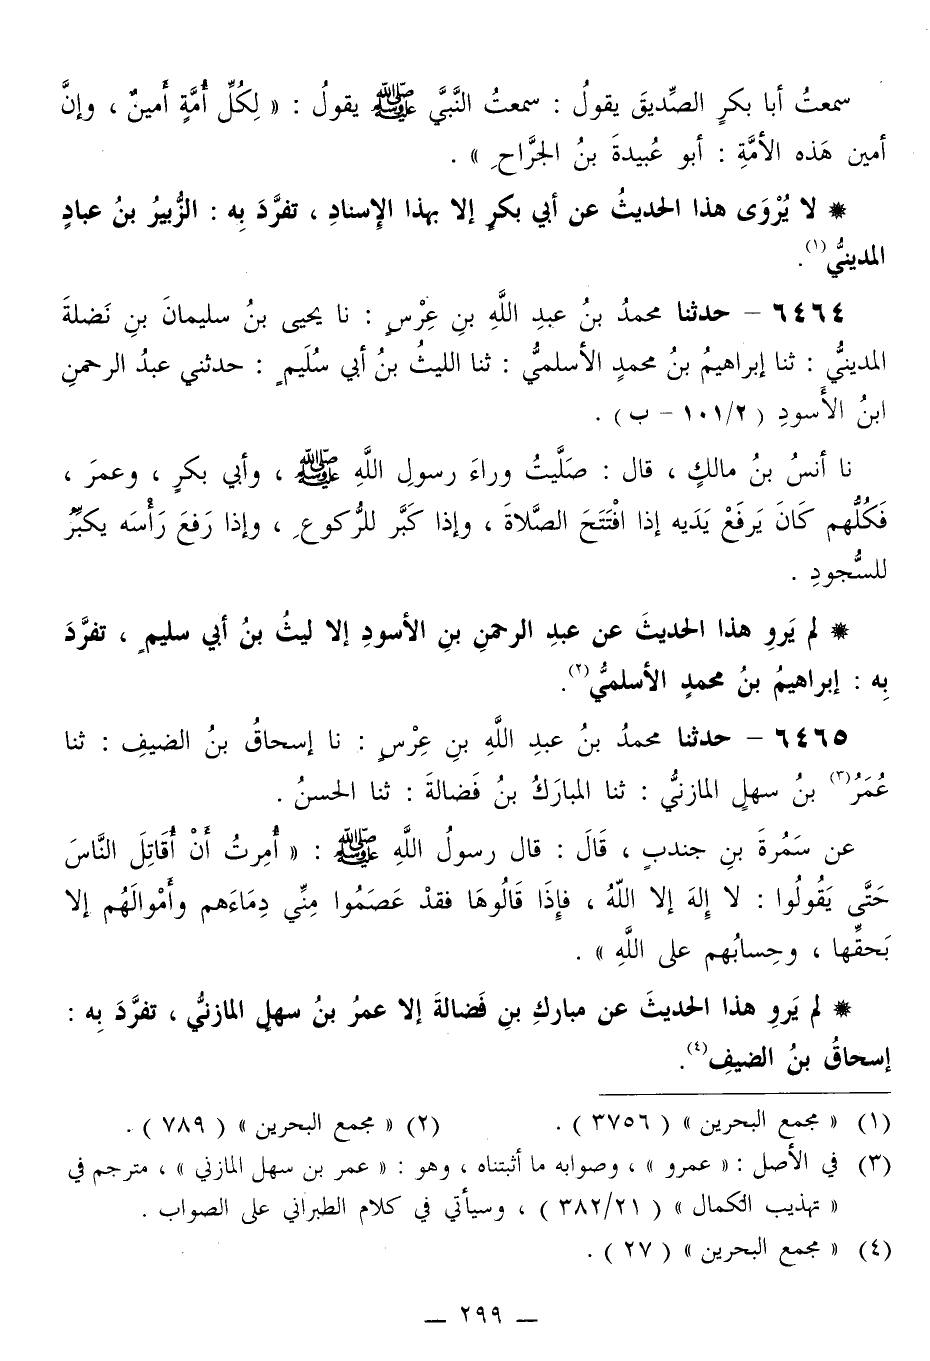 سمعتُ أبا بكرٍ الصِّديقَ يقولُ : سمعتُ النَّبيَّ ﷺ يقولُ : « لِكُلِّ أُمَّةٍ أَمينٌ ، وإنَّ
أمين هَذه الأمَّةِ : أبو عُبيدةَ بنُ الجَرَّاحِ » .
* لا يُرْوَى هذا الحديثُ عن أبي بكرٍ إلا بهذا الإسنادِ ، تفرَّدَ بِه : الزُّبيرُ بنُ عبادٍ
المدينيُّ(١).
٦٤٦٤ - حدثنا محمدُ بنُ عبدِ اللَّهِ بنِ عِرْسٍ : نا يحيى بنُ سليمانَ بنِ نَضلةَ
المدينيُّ : ثنا إبراهيمُ بنُ محمدٍ الأسلميُّ : ثنا الليثُ بنُ أبي سُلَيمٍ : حدثني عبدُ الرحمنِ
ابنُ الأَسودِ ( ١٠١/٢ - ب ) .
نا أنسُ بنُ مالكٍ ، قال : صَلَّيتُ وراءَ رسولِ اللَّهِ ﷺ ، وأبي بكرٍ ، وعمرَ ،
فَكُلُّهم كَانَ يَرفَعْ يَدَيه إذا افْتَتَحَ الصَّلاةَ ، وإذا كَبَّر للرُّكوعِ ، وإذا رَفعَ رَأْسَه يكبِّرُ
للسُّجودِ .
* لم يَروِ هذا الحديثَ عن عبدِ الرحمنِ بنِ الأسودِ إلا ليثُ بنُ أبي سليمٍ ، تفرَّدَ
بِه : إبراهيمُ بنُ محمدٍ الأسلميُّ(٢).
٦٤٦٥ - حدثنا محمدُ بنُ عبدِ اللَّهِ بنِ عِرْسٍ : نا إسحاقُ بنُ الضيفِ : ثنا
عُمَرُ(٣) بنُ سهلٍ المازنيُّ : ثنا المباركُ بنُ فَضالةَ : ثنا الحسنُ .
عن سَمُرةَ بنِ جندبٍ ، قَالَ : قال رسولُ اللَّهِ ﷺ : « أُمِرتُ أَنْ أُقَاتِلَ النَّاسَ
حَتَّى يَقُولُوا : لا إلهَ إلا اللَّهُ ، فإِذَا قَالُوهَا فقدْ عَصَمُوا مِنِّي دِمَاءَهم وأَمْوالَهُم إلا
بَحقِّها ، وحِسابُهم على اللَّهِ » .
* لم يَروِ هذا الحديثَ عن مباركِ بنِ فَضالةَ إلا عمرُ بنُ سهلٍ المازنيُّ ، تفرَّدَ بِه :
إسحاقُ بنُ الضيفِ(٤).
(١) « مجمع البحرين » ( ٣٧٥٦ ) . (٢) « مجمع البحرين » ( ٧٨٩ ) .
(٣) في الأصل : « عمرو » ، وصوابه ما أثبتناه ، وهو : « عمر بن سهل المازني » ، مترجم في
« تهذيب الكمال » ( ٣٨٢/٢١ ) ، وسيأتي في كلام الطبراني على الصواب .
(٤) « مجمع البحرين » ( ٢٧ ) .
— ٢٩٩ —